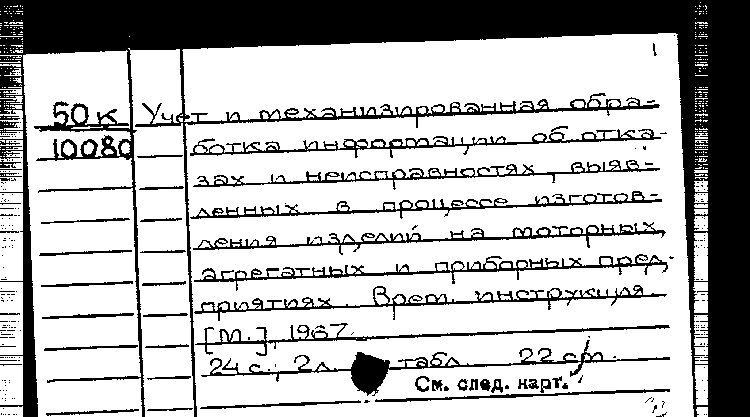 1
50к Учет и механизированная обра-
10080 ботка информации об отка-
зах и неисправностях, выяв-
ленных в процессе изготов-
ления изделий на моторных,
агрегатных и приборных пред-
приятиях. Врем. инструкция.
[М.], 1967.
24 с., 2л. табл. 22 см.
См. след. карт.